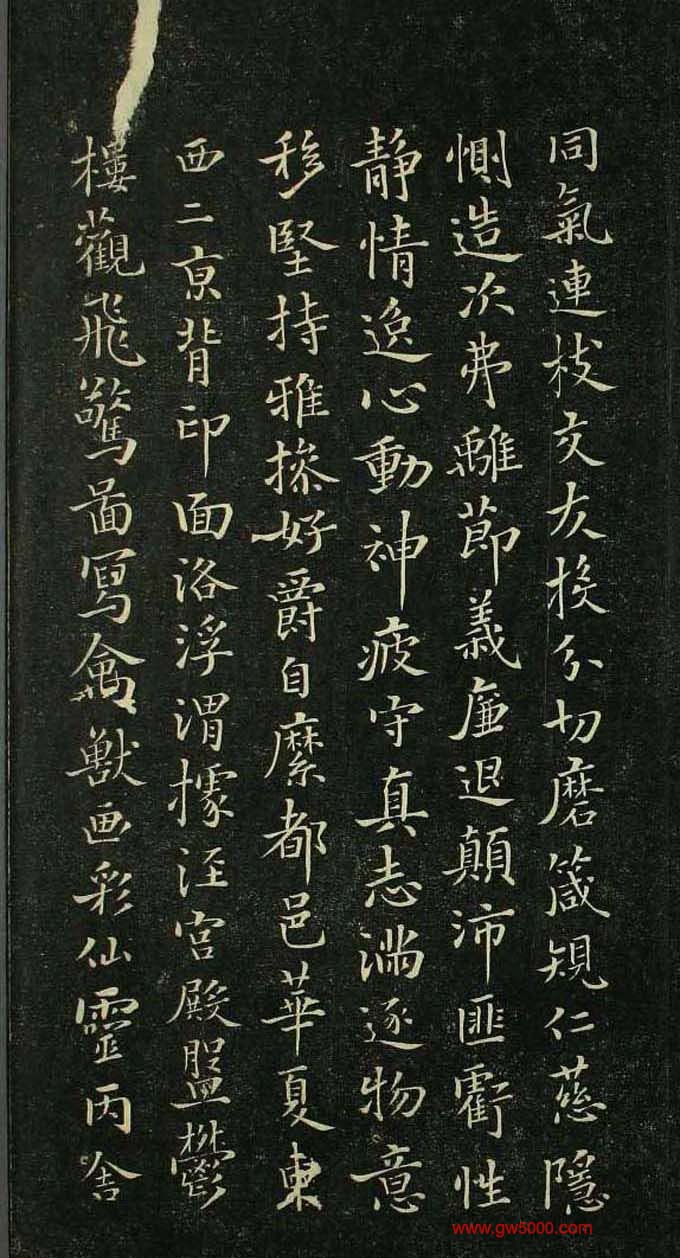 同氣連枝交友投分切磨箴規仁慈隱
惻造次弗離節義廉退顛沛匪虧性
静情逸心動神疲守真志滿逐物意
移堅持雅操好爵自縻都邑華夏東
西二京背邙面洛浮渭據涇宮殿盤鬱
樓觀飛驚啚寫禽獸画彩仙靈丙舍
www.gw5000.com